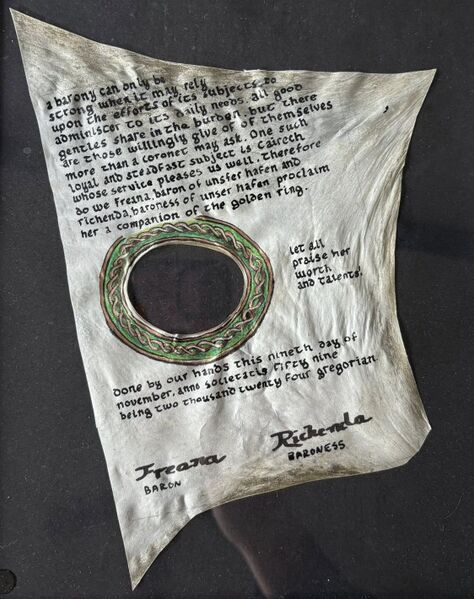 a barony can only be
strong when it may rely
upon the efforts of its subjects to
administer to its daily needs. all good
gentles share in the burden. but there
are those willingly give of of themselves
more than a coronet may ask. One such
loyal and steadfast subject is Cairech
whose service pleases us well. Therefore
do we freana, baron of unser hafen and
richenda, baroness of unser hafen proclaim
her a companion of the golden ring.
let all
praise her
worth
and talents.
done by our hands this nineth day of
november, anno societatis fifty nine
being two thousand twenty four gregorian
Freana
BARON
Richenda
BARONESS